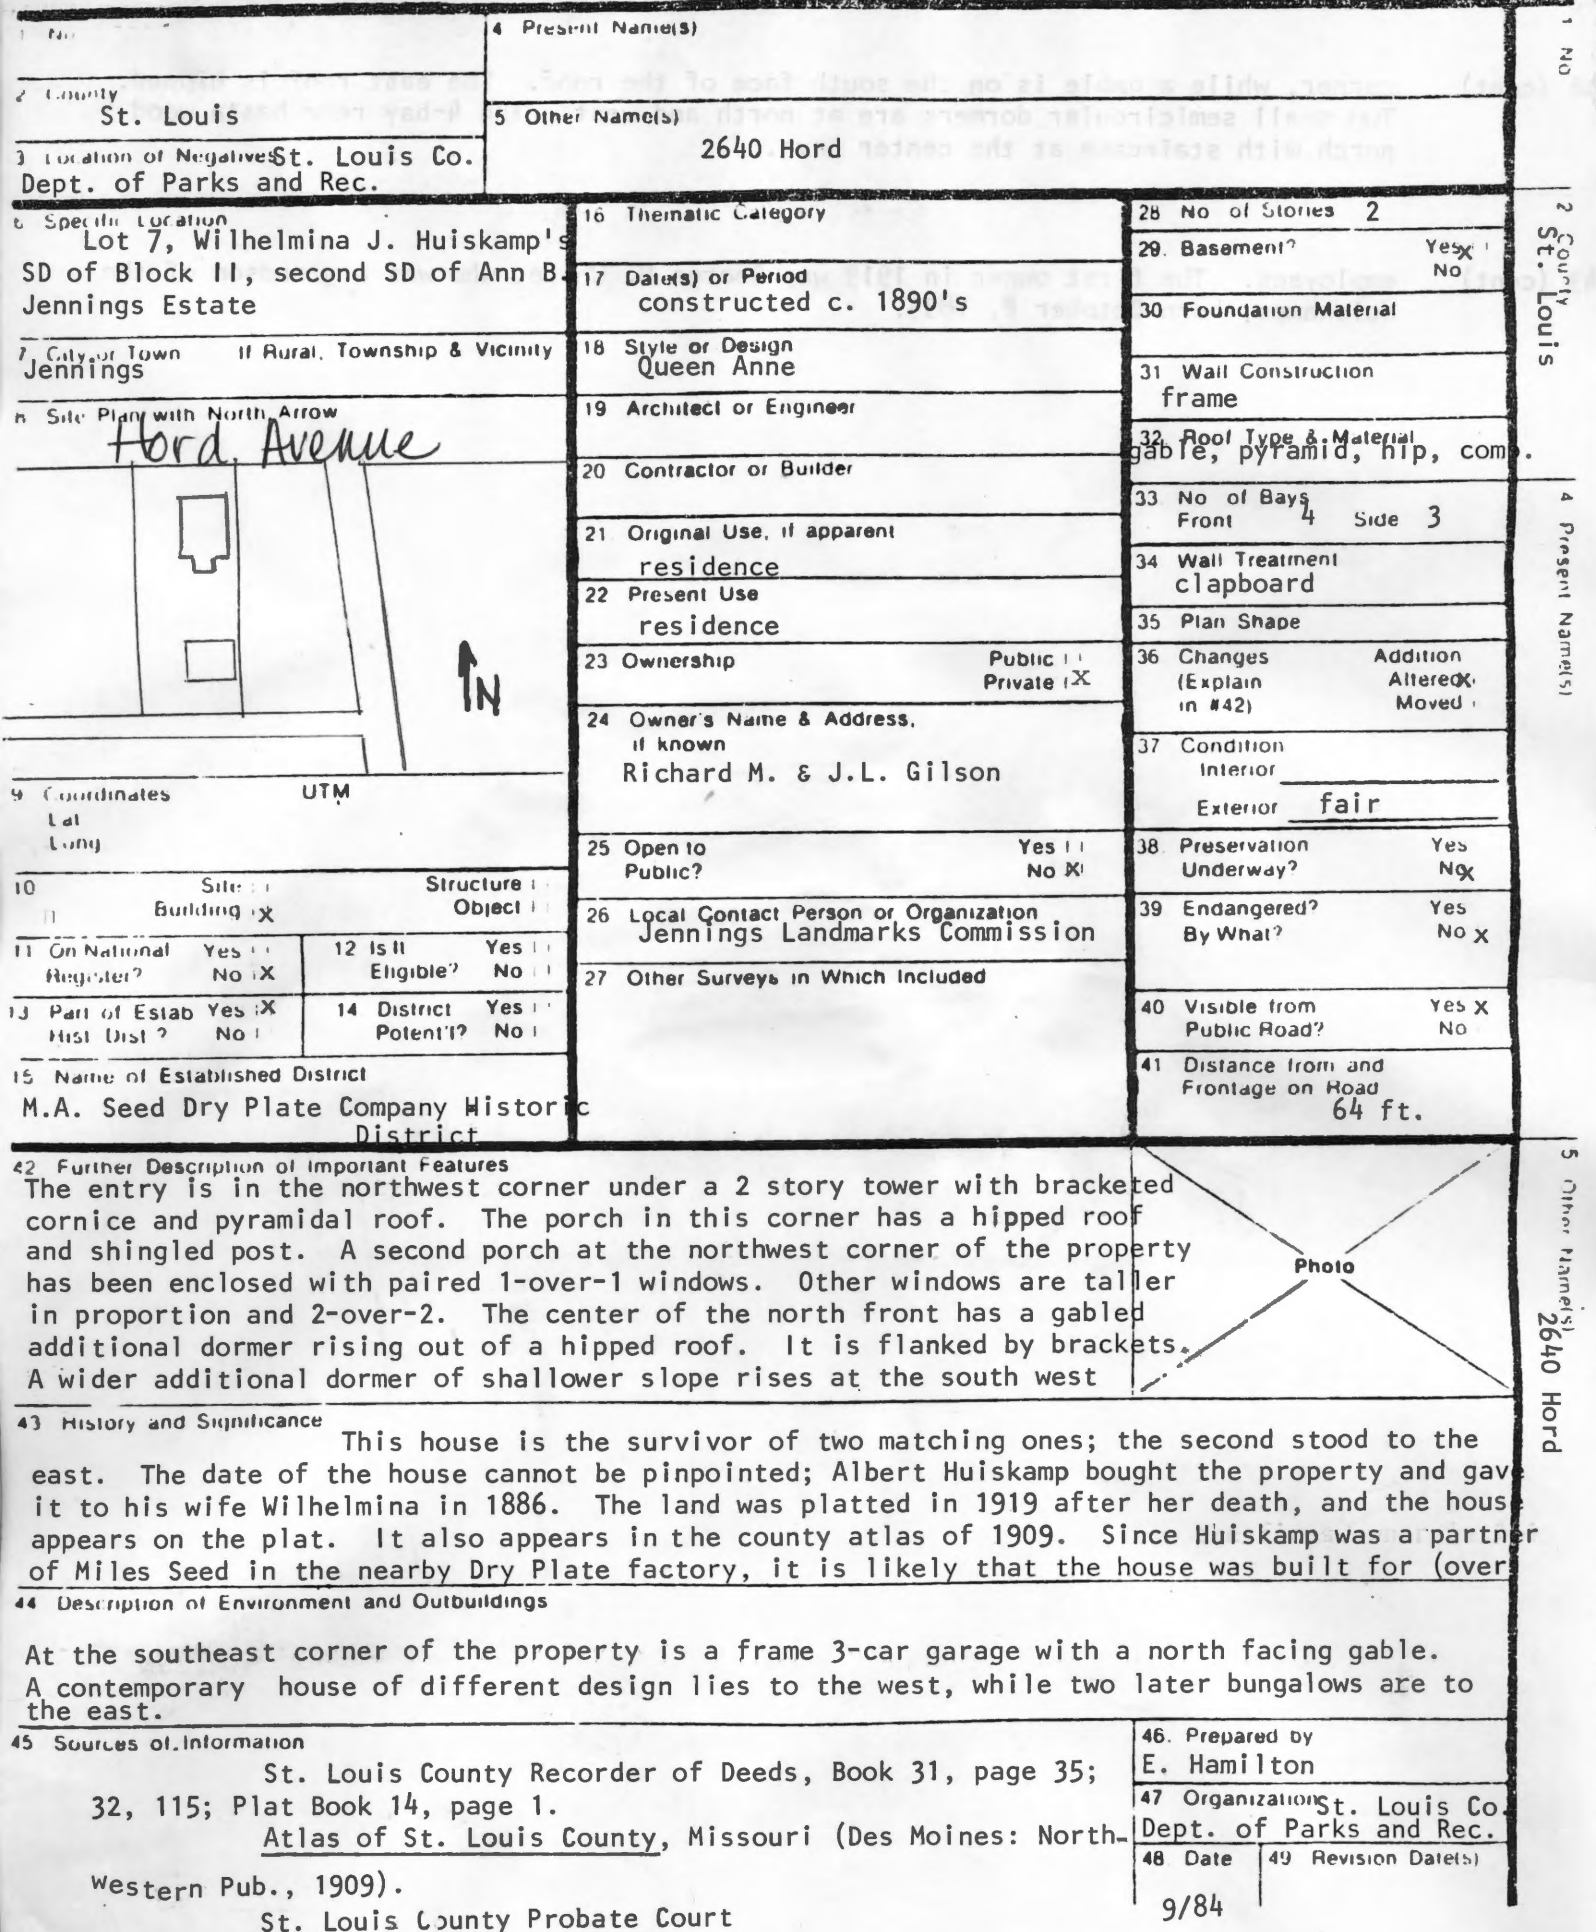 1 No
4 Present Name(s)
2 County
St. Louis
5 Other Name(s)
2640 Hord
3 Location of Negatives St. Louis Co.
Dept. of Parks and Rec.
6 Specific Location
Lot 7, Wilhelmina J. Huiskamp's
SD of Block II, second SD of Ann B.
Jennings Estate
7 City or Town If Rural, Township & Vicinity
Jennings
8 Site Plan with North Arrow
Hord Avenue
N
9 Coordinates UTM
Lat
Long
10 Site
Structure
Building X
Object
11 On National Register? Yes
No X
12 Is It Eligible? Yes
No
13 Part of Estab Hist Dist? Yes X
No
14 District Potent'l? Yes
No
15 Name of Established District
M.A. Seed Dry Plate Company Historic
District
16 Thematic Category
17 Date(s) or Period
constructed c. 1890's
18 Style or Design
Queen Anne
19 Architect or Engineer
20 Contractor or Builder
21 Original Use, if apparent
residence
22 Present Use
residence
23 Ownership Public
Private X
24 Owner's Name & Address,
if known
Richard M. & J.L. Gilson
25 Open to Yes
Public? No X
26 Local Contact Person or Organization
Jennings Landmarks Commission
27 Other Surveys in Which Included
28 No of Stories 2
29. Basement? Yes X
No
30 Foundation Material
31 Wall Construction
frame
32 Roof Type & Material
gable, pyramid, hip, comp.
33 No of Bays
Front 4 Side 3
34 Wall Treatment
clapboard
35 Plan Shape
36 Changes Addition
(Explain Altered X
in #42) Moved
37 Condition
Interior
Exterior fair
38 Preservation Yes
Underway? No X
39 Endangered? Yes
By What? No X
40 Visible from Yes X
Public Road? No
41 Distance from and
Frontage on Road
64 ft.
42 Further Description of Important Features
The entry is in the northwest corner under a 2 story tower with bracketed
cornice and pyramidal roof. The porch in this corner has a hipped roof
and shingled post. A second porch at the northwest corner of the property
has been enclosed with paired 1-over-1 windows. Other windows are taller
in proportion and 2-over-2. The center of the north front has a gabled
additional dormer rising out of a hipped roof. It is flanked by brackets.
A wider additional dormer of shallower slope rises at the south west
Photo
43 History and Significance
This house is the survivor of two matching ones; the second stood to the
east. The date of the house cannot be pinpointed; Albert Huiskamp bought the property and gave
it to his wife Wilhelmina in 1886. The land was platted in 1919 after her death, and the house
appears on the plat. It also appears in the county atlas of 1909. Since Huiskamp was a partner
of Miles Seed in the nearby Dry Plate factory, it is likely that the house was built for (over
44 Description of Environment and Outbuildings
At the southeast corner of the property is a frame 3-car garage with a north facing gable.
A contemporary house of different design lies to the west, while two later bungalows are to
the east.
45 Sources of Information
St. Louis County Recorder of Deeds, Book 31, page 35;
32, 115; Plat Book 14, page 1.
Atlas of St. Louis County, Missouri (Des Moines: North-
western Pub., 1909).
St. Louis County Probate Court
46. Prepared by
E. Hamilton
47 Organization St. Louis Co.
Dept. of Parks and Rec.
48 Date
9/84
49 Revision Date(s)
1 No
2 County
St. Louis
4 Present Name(s)
5 Other Name(s)
2640 Hord